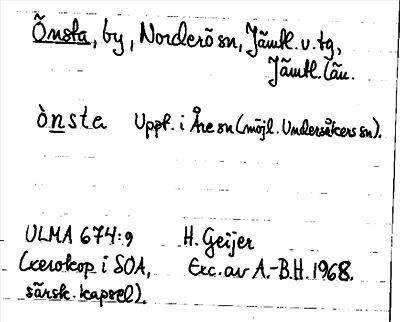 Önsta, by, Norderö sn, Jämtl. v. tg,
Jämtl. län.
ò̀nsta Uppt. i Åre sn (möjl. Undersåkers sn).
ULMA 674:9 H. Geijer
(xerokop i SOA, Exc. av A.-B.H. 1968.
särsk. kapsel).